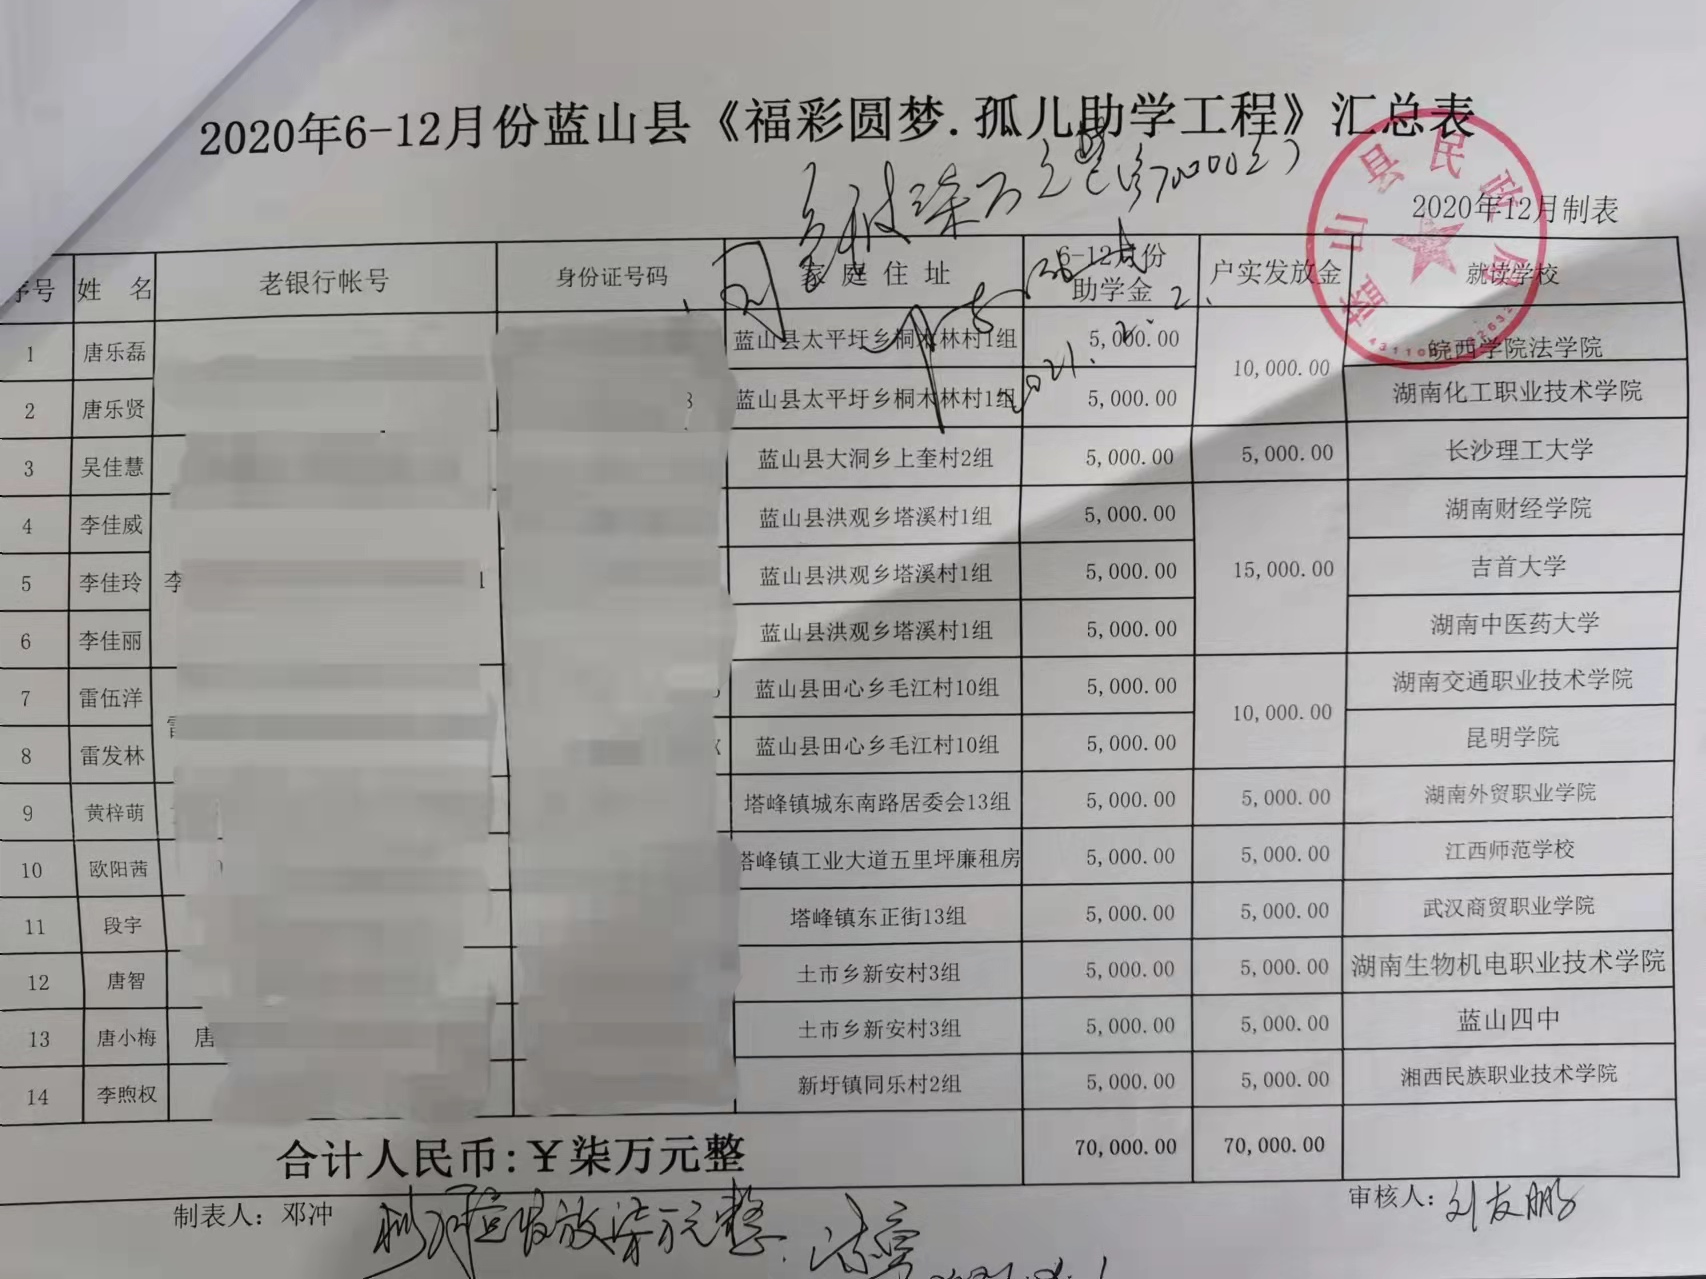 2020年6-12月份蓝山县《福彩圆梦.孤儿助学工程》汇总表
2020年12月制表
序号 姓 名 老银行帐号 身份证号码 家 庭 住 址 6-12月份助学金 户实发放金 就读学校
1 唐乐磊 蓝山县太平圩乡桐木林村1组 5,000.00 10,000.00 皖西学院法学院
2 唐乐贤 蓝山县太平圩乡桐木林村1组 5,000.00 湖南化工职业技术学院
3 吴佳慧 蓝山县大洞乡上奎村2组 5,000.00 5,000.00 长沙理工大学
4 李佳威 蓝山县洪观乡塔溪村1组 5,000.00 湖南财经学院
5 李佳玲 李 1 蓝山县洪观乡塔溪村1组 5,000.00 15,000.00 吉首大学
6 李佳丽 蓝山县洪观乡塔溪村1组 5,000.00 湖南中医药大学
7 雷伍洋 蓝山县田心乡毛江村10组 5,000.00 10,000.00 湖南交通职业技术学院
8 雷发林 X 蓝山县田心乡毛江村10组 5,000.00 昆明学院
9 黄梓萌 塔峰镇城东南路居委会13组 5,000.00 5,000.00 湖南外贸职业学院
10 欧阳茜 塔峰镇工业大道五里坪廉租房 5,000.00 5,000.00 江西师范学校
11 段宇 塔峰镇东正街13组 5,000.00 5,000.00 武汉商贸职业学院
12 唐智 土市乡新安村3组 5,000.00 5,000.00 湖南生物机电职业技术学院
13 唐小梅 唐 土市乡新安村3组 5,000.00 5,000.00 蓝山四中
14 李煦权 新圩镇同乐村2组 5,000.00 5,000.00 湘西民族职业技术学院
合计人民币:￥柒万元整 70,000.00 70,000.00
制表人: 邓冲 审核人: 刘友鹏
发放柒万元整.
蓝山县民政局